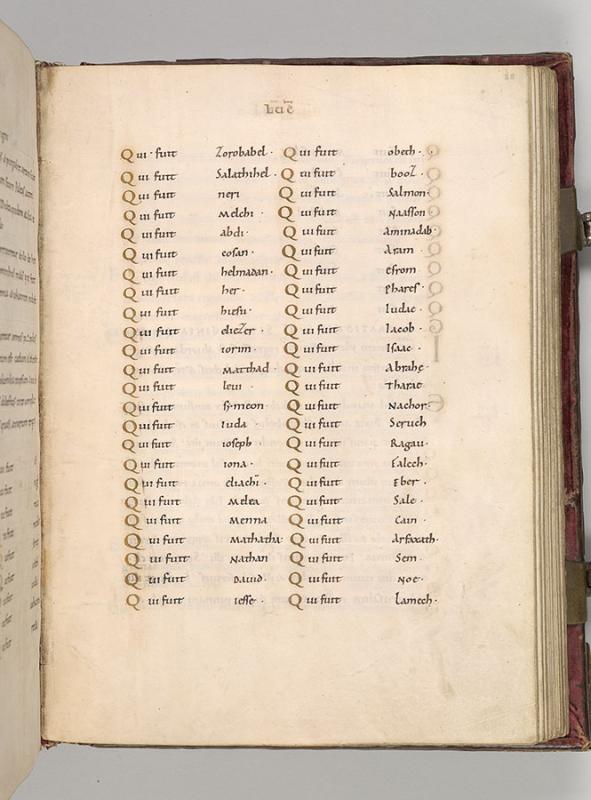 Qui fuit Zorobabel ·
Qui fuit Salathihel ·
Qui fuit neri
Qui fuit Melchi ·
Qui fuit abdi ·
Qui fuit cosan ·
Qui fuit helmadan ·
Qui fuit her ·
Qui fuit hiesu ·
Qui fuit eliezer ·
Qui fuit iorim ·
Qui fuit Matthad ·
Qui fuit leui ·
Qui fuit symeon
Qui fuit Iuda ·
Qui fuit ioseph
Qui fuit iona ·
Qui fuit eliachi ·
Qui fuit Melea
Qui fuit Menna
Qui fuit Mathatha
Qui fuit Nathan
Qui fuit DAVID ·
Qui fuit iesse ·
Qui fuit obeth ·
Qui fuit booz ·
Qui fuit Salmon ·
Qui fuit Naasson ·
Qui fuit Aminadab ·
Qui fuit Aram ·
Qui fuit esrom ·
Qui fuit Phares ·
Qui fuit Iudae ·
Qui fuit Iacob ·
Qui fuit Isaac ·
Qui fuit Abrahe ·
Qui fuit Tharae
Qui fuit Nachor ·
Qui fuit Seruch
Qui fuit Ragau ·
Qui fuit Falech ·
Qui fuit Eber ·
Qui fuit Sale ·
Qui fuit Cain ·
Qui fuit Arfaxath ·
Qui fuit Sem ·
Qui fuit Noe ·
Qui fuit Lamech ·